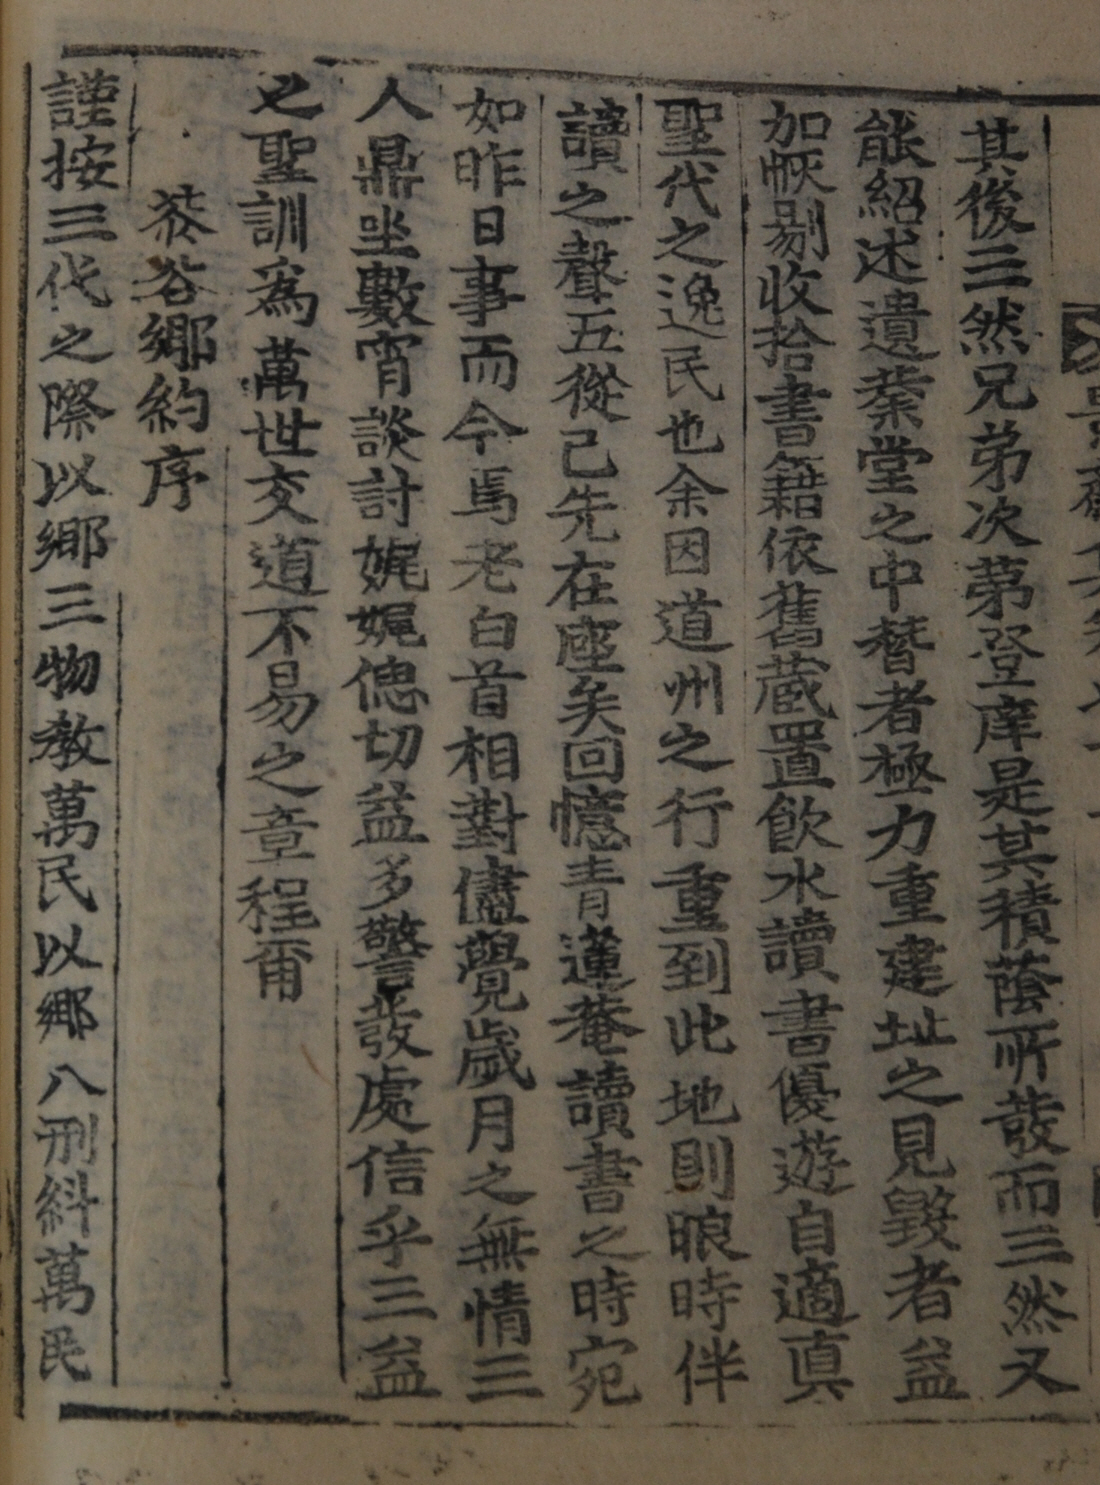 其後三然兄弟次第登庠是其積蔭所發而三然又
能紹述遺業堂之中替者極力重建址之見毀者益
加恢剔收拾書籍依舊蔵置飮水讀書優遊自適真
聖代之逸民也余因道州之行重到此地則眼時伴
讀之聲五從已先在座矣回憶青蓮菴讀書之時宛
如昨日事而今焉老白首相對儘覺歲月之無情三
人鼎坐數宵談討娓娓偲切益多警發處信乎三益
之聖訓爲萬世交道不易之章程甭
茶谷鄉約序
謹按三代之際以鄉三物教萬民以鄉八刑糾萬民